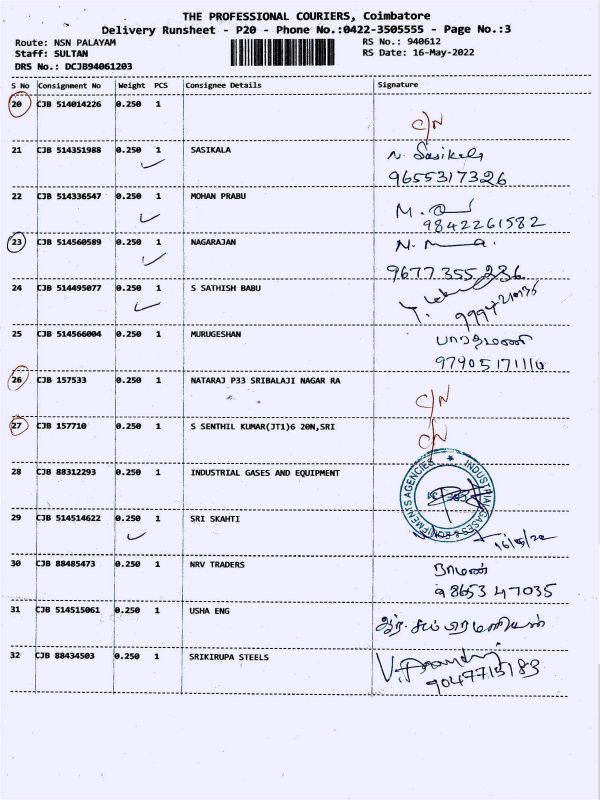 THE PROFESSIONAL COURIERS, Coimbatore
Delivery Runsheet - P20 - Phone No.:0422-3505555 - Page No.:3
Route: NSN PALAYAM RS No.: 940612
Staff: SULTAN RS Date: 16-May-2022
DRS No.: DCJB94061203
S No Consignment No Weight PCS Consignee Details Signature
20 CJB 514014226 0.250 1
C/N
21 CJB 514351988 0.250 1 SASIKALA N. Sasikala
9655317326
22 CJB 514336547 0.250 1 MOHAN PRABU
9842261582
23 CJB 514560589 0.250 1 NAGARAJAN
9677355236
24 CJB 514495077 0.250 1 S SATHISH BABU
25 CJB 514566004 0.250 1 MURUGESHAN
26 CJB 157533 0.250 1 NATARAJ P33 SRIBALAJI NAGAR RA
C/N
27 CJB 157710 0.250 1 S SENTHIL KUMAR(JT1)6 20N,SRI
C/N
28 CJB 88312293 0.250 1 INDUSTRIAL GASES AND EQUIPMENT
INDUSTRIAL GASES & EQUIPMENTS AGENCIES
29 CJB 514514622 0.250 1 SRI SKAHTI
16/05/22
30 CJB 88485473 0.250 1 NRV TRADERS
9865347035
31 CJB 514515061 0.250 1 USHA ENG
32 CJB 88434503 0.250 1 SRIKIRUPA STEELS